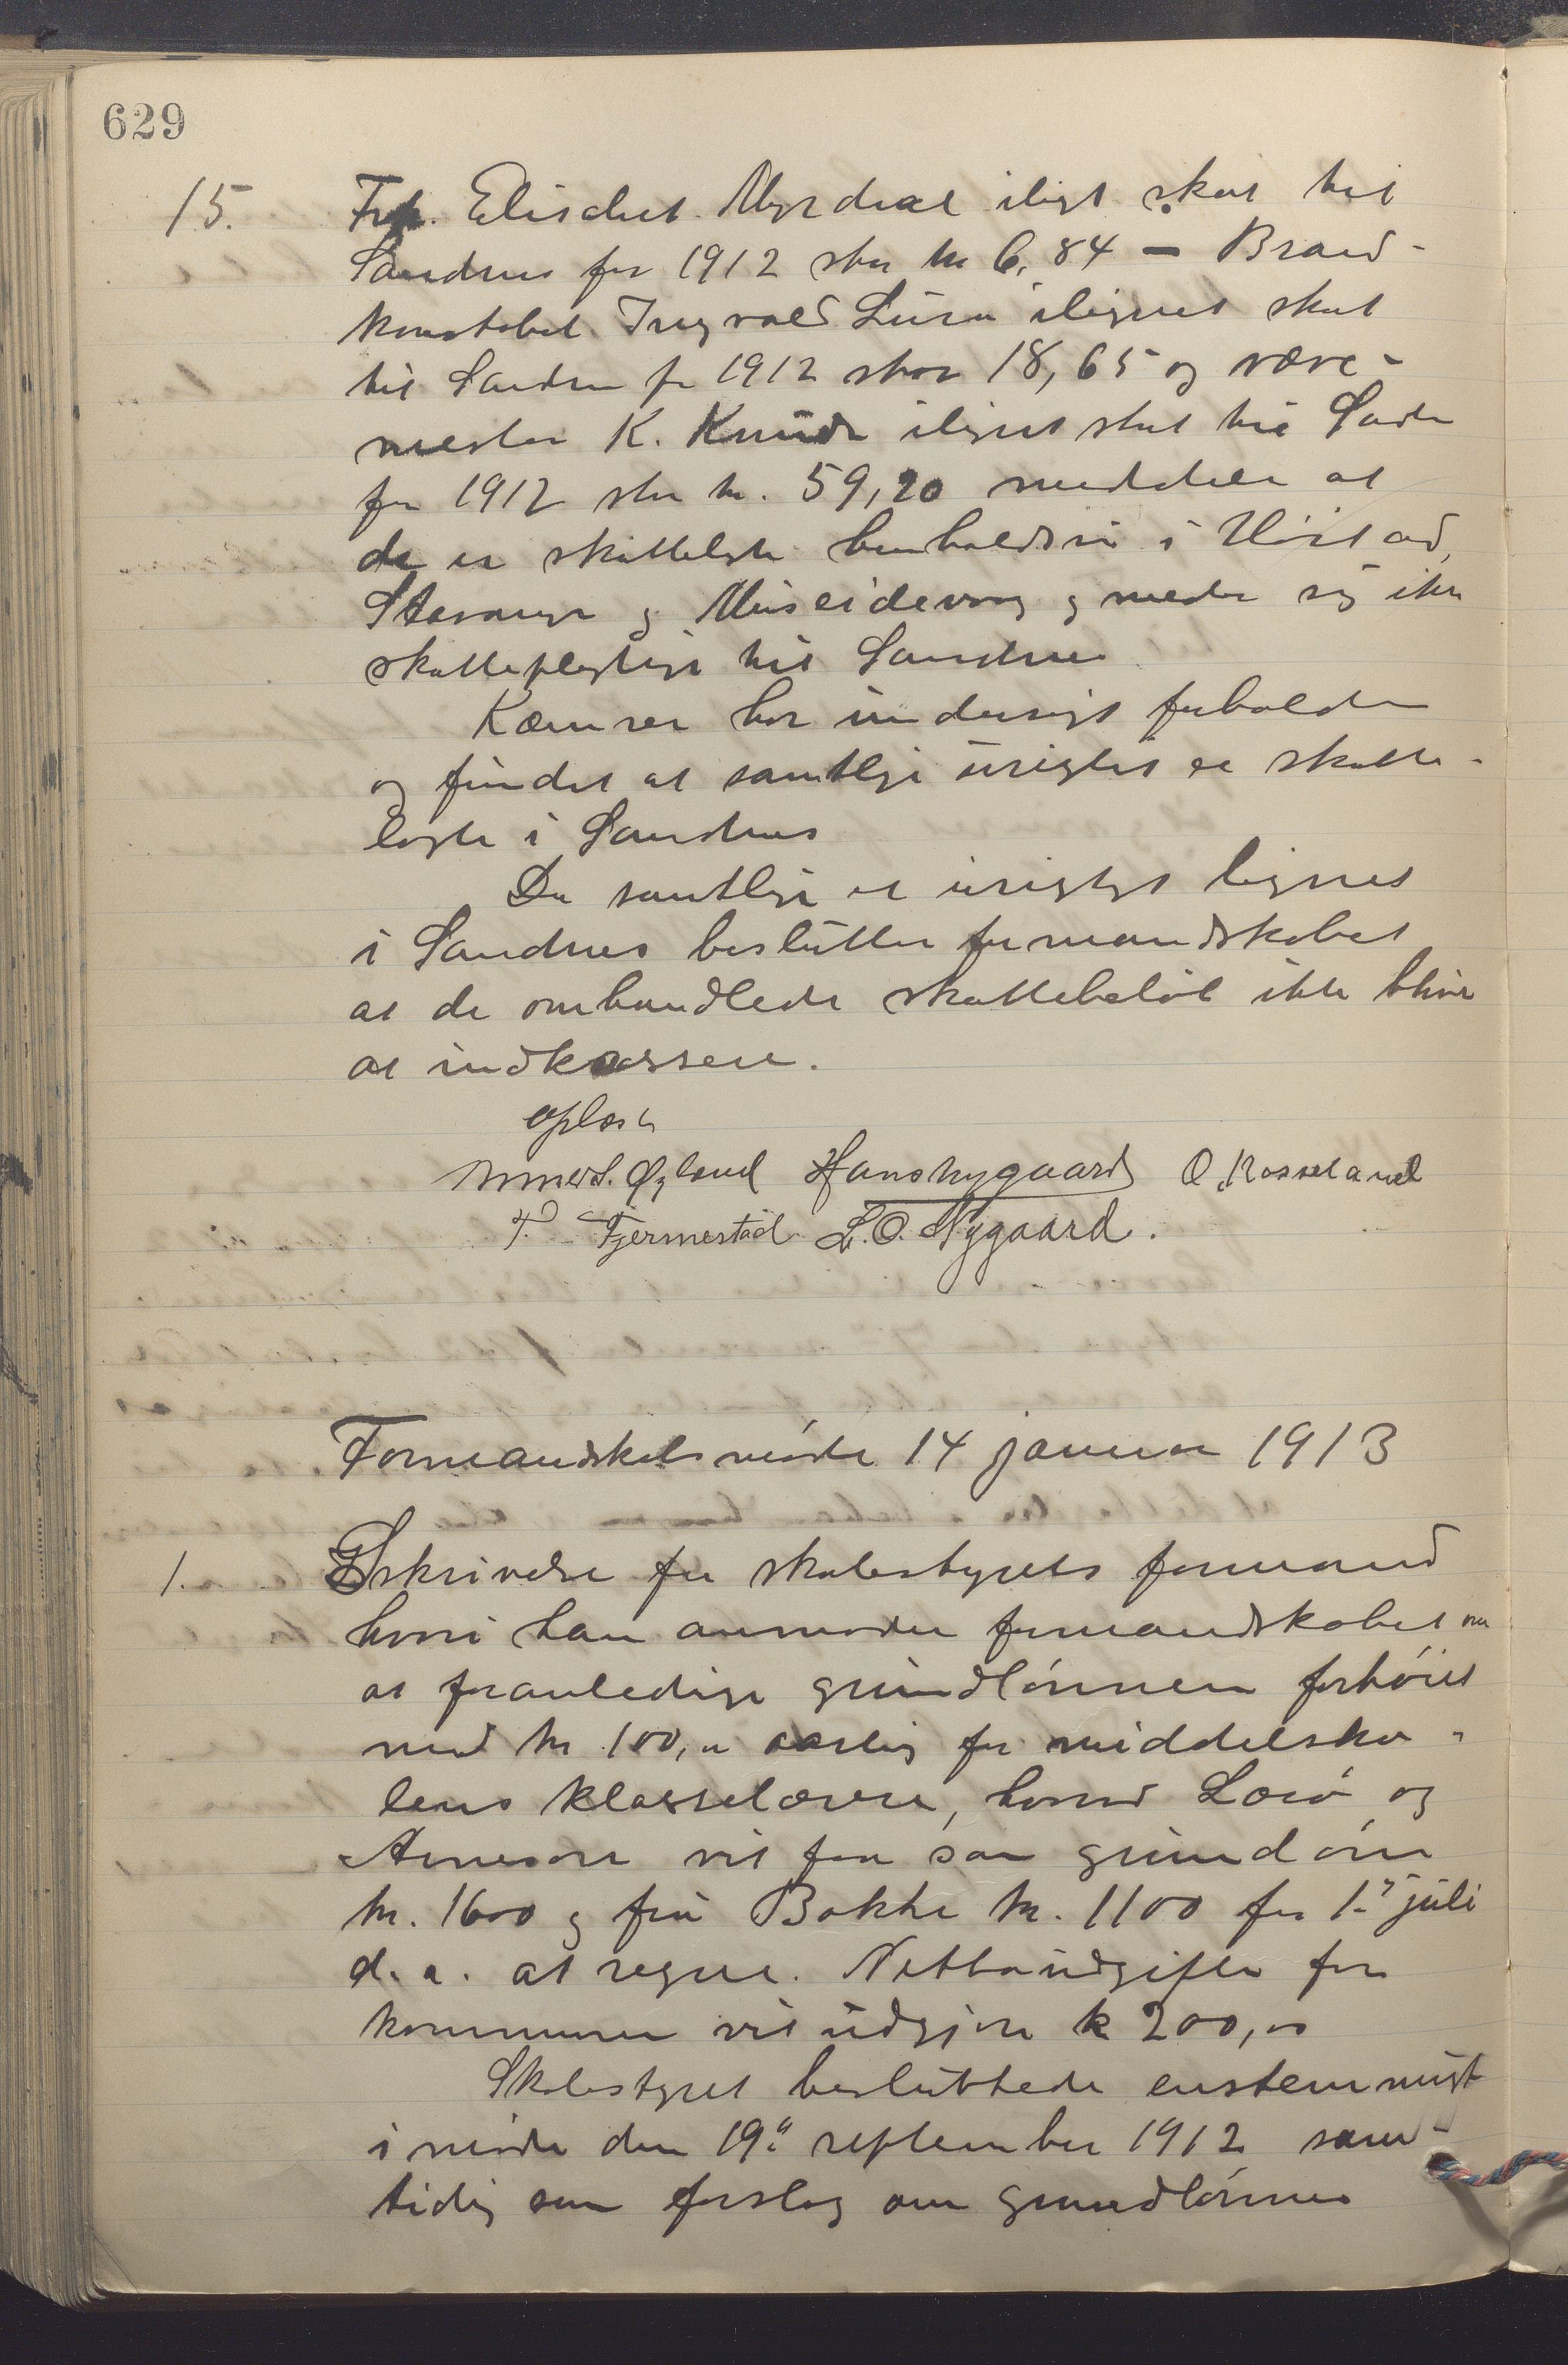 629
15. Frk. Elisabet Myrdal iligt skat til
Sandnes for 1912 stor kr 6,84 – Brand-
konstabel Ingvald Lura ilignet skat
til Sandnes for 1912 stor 18,65 og væve-
mester K. Knuds ilignet skat til Sandnes
for 1912 stor kr. 59,20 meddeler at
de er skattelagte henholdsvis i
Stavanger og og mener sig ikke
skattepligtige til Sandnes
Kæmner har undersøgt forholdene
og fundet at samtlige urigtig er skatte-
lagte i Sandnes
Da samtlige er urigtigt lignet
i Sandnes beslutter formandskabet
at de omhandlede skattebeløb ikke bliver
at indkassere.
Oplæst
S. Øgland Hans Nygaard O. Rosseland
T. Fjermestad L. O. Nygaard.
Formandskabsmøde 14 januar 1913
1. Skrivelse fra skolestyrets formand
hvori han anmoder formandskabet om
at foranledige grundlønnen forhøiet
med kr 100,00 aarlig for middelsko-
lens klasselærere, hvorved og
Arnesen vil faa som grundløn
kr. 1600 og fru Bakke kr. 1100 fra 1. juli
d.a. at regne. Nettoudgiften for
kommunen vil udgjøre k 200,00
Skolestyret besluttede enstemmigt
i møde den 19. september 1912 sam-
tidig som forslag om grundlønnes